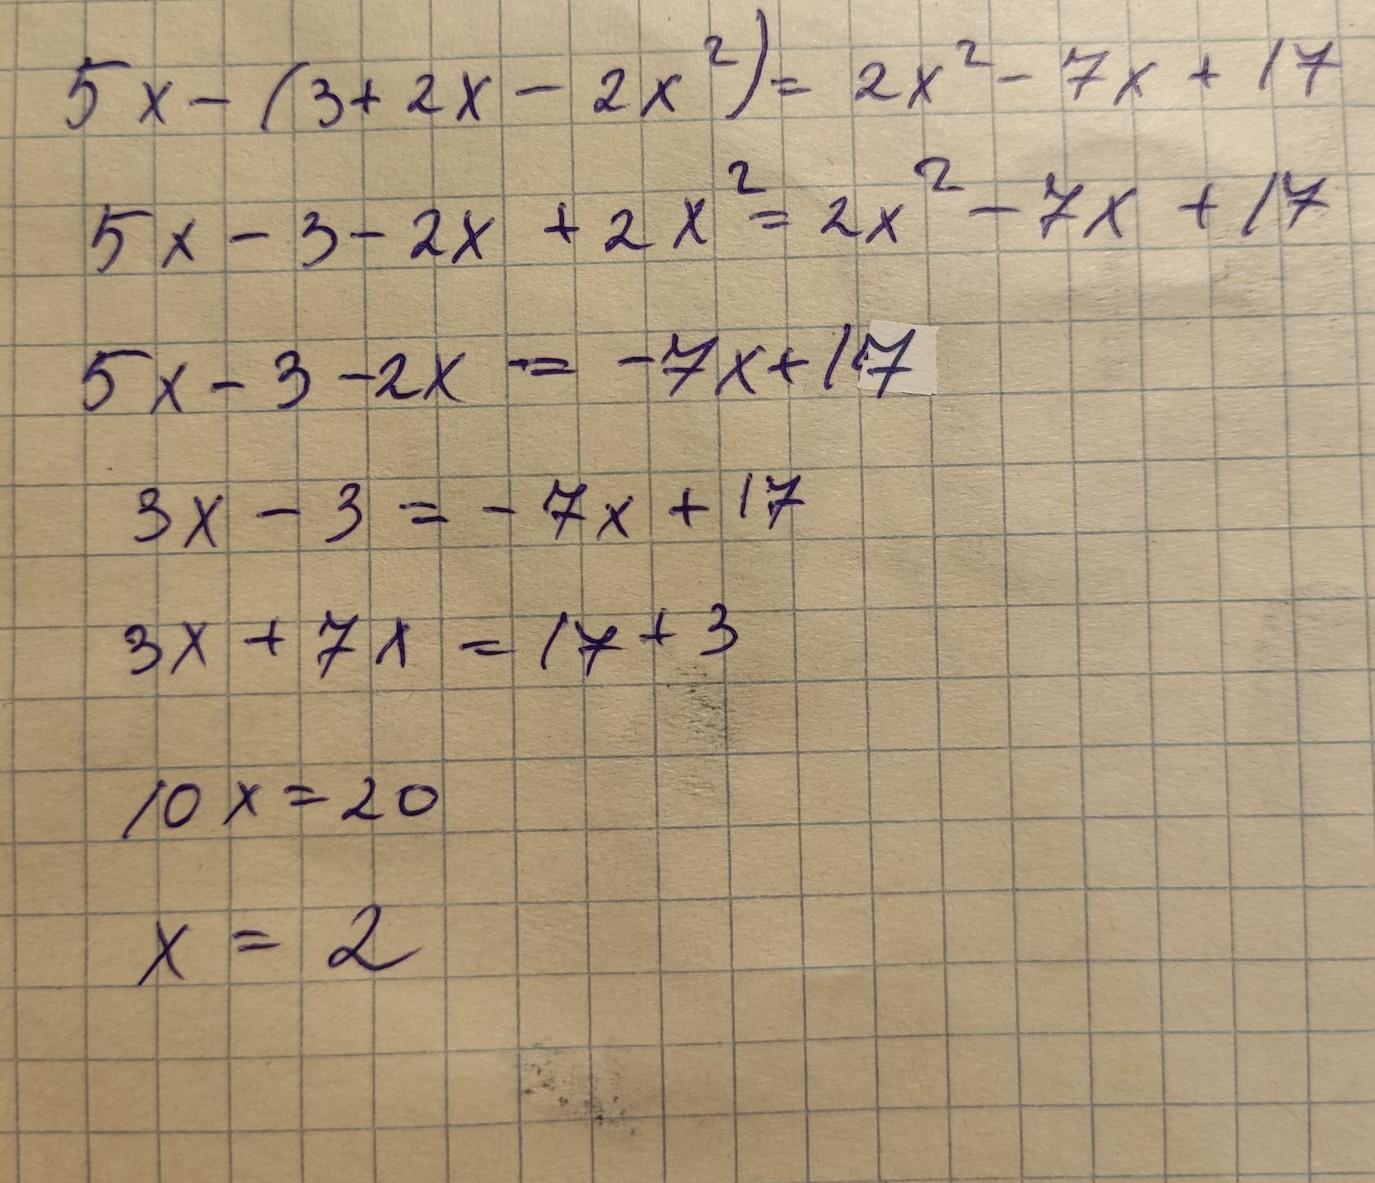 5x - (3 + 2x - 2x²) = 2x² - 7x + 17
5x - 3 - 2x + 2x² = 2x² - 7x + 17
5x - 3 - 2x = -7x + 17
3x - 3 = -7x + 17
3x + 7x = 17 + 3
10x = 20
x = 2